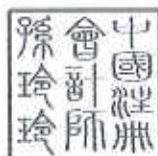 中國註冊
會計師
孫玲玲